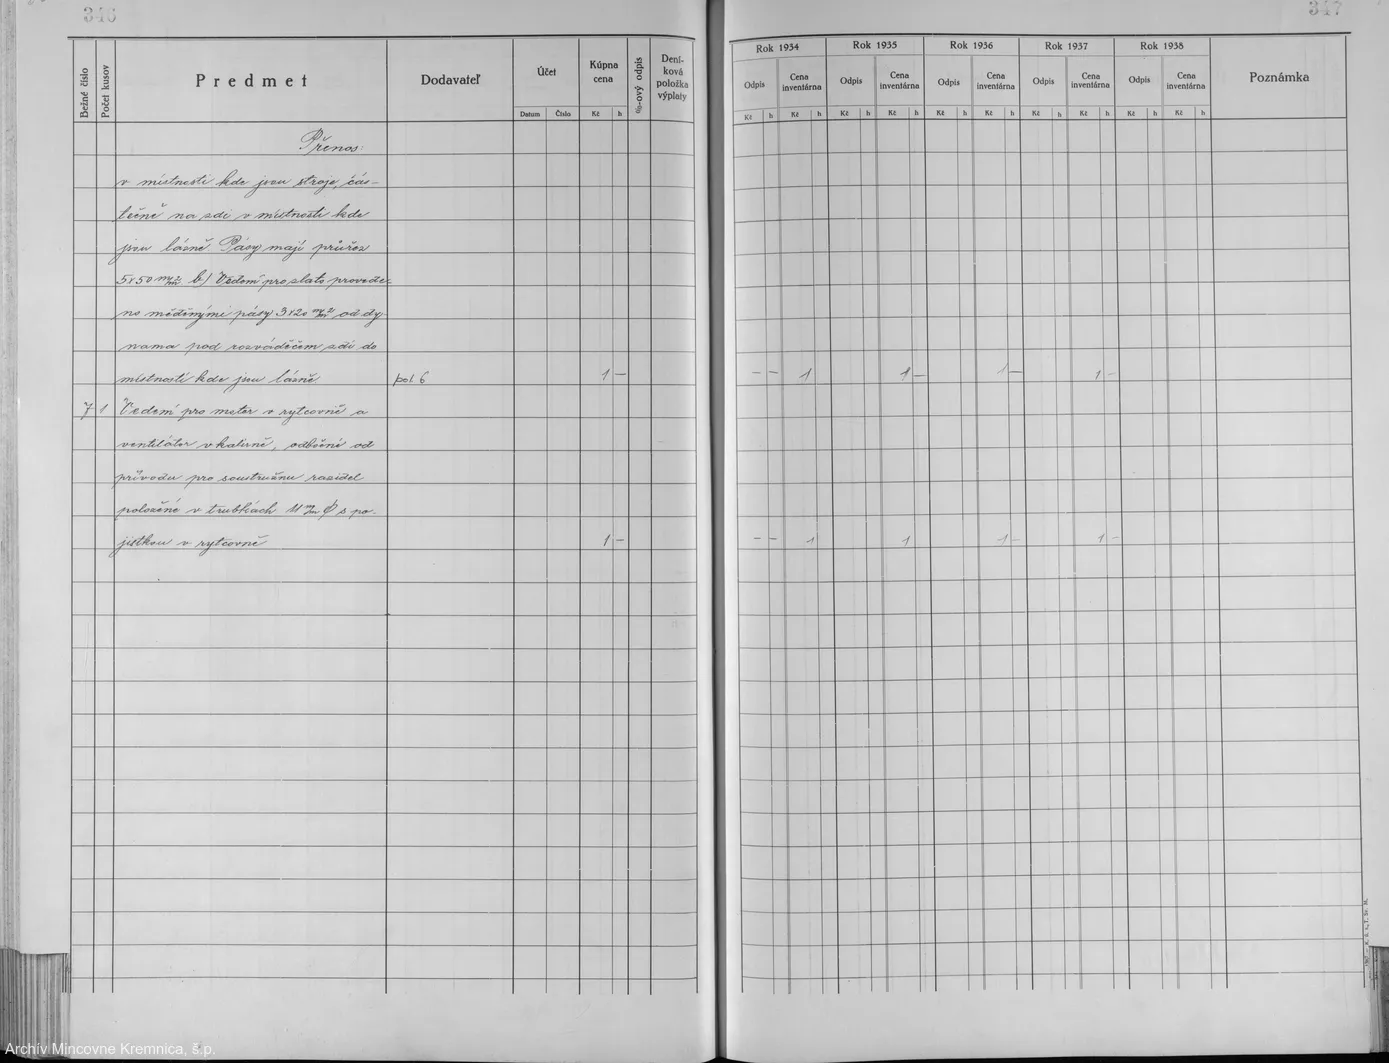 346
347
Bežné číslo
Počet kusov
Predmet
Dodavateľ
Účet
Datum
Číslo
Kúpna cena
Kč h
%-ový odpis
Deníková položka výplaty
Rok 1934
Odpis
Kč h
Cena inventárna
Kč h
Rok 1935
Odpis
Kč h
Cena inventárna
Kč h
Rok 1936
Odpis
Kč h
Cena inventárna
Kč h
Rok 1937
Odpis
Kč h
Cena inventárna
Kč h
Rok 1938
Odpis
Kč h
Cena inventárna
Kč h
Poznámka
Přenos:
v místnosti kde jsou stroje, čás-
tečně na zdi v místnosti kde
jsou lázně. Pásy mají průřez
5x50 m/m2 b/ Vedení pro zlato provede-
no měděnými pásy 3x20 m/m2 od dy-
nama pod rozváděčem zdi do
místností kde jsou lázně pol. 6 1 — — — 1 1 — 1 — 1 —
7 1 Vedení pro motor v rytcovně a
ventilátor v kalírně, odbočné od
přívodu pro soustružnu razidel
položené v trubkách 11 m/m Ø s po-
jistkou v rytcovně 1 — — — 1 1 1 — 1 —
Archív Mincovne Kremnica, š.p.